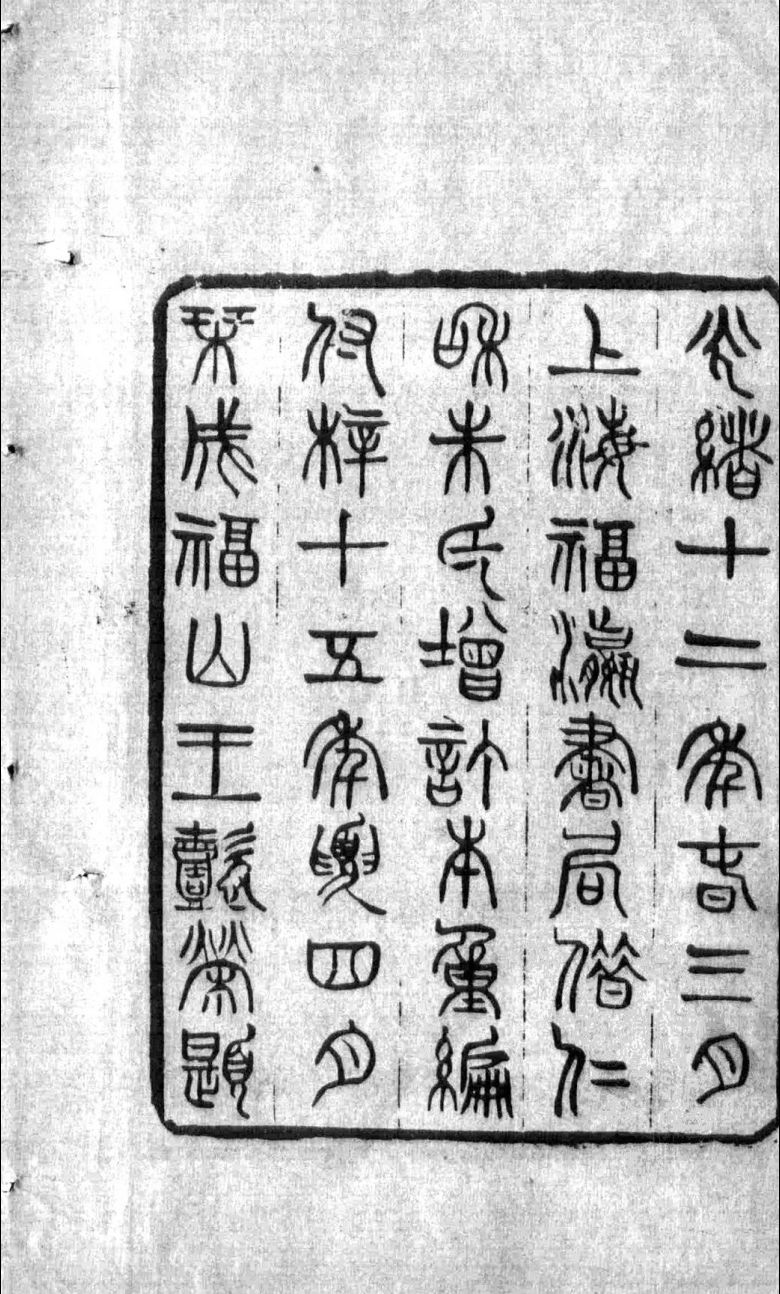 光緒十二年春三月
上海福瀛書局借仁
咊朱氏增訂本重編
付梓十五年夏四月
栞成福山王懿榮題